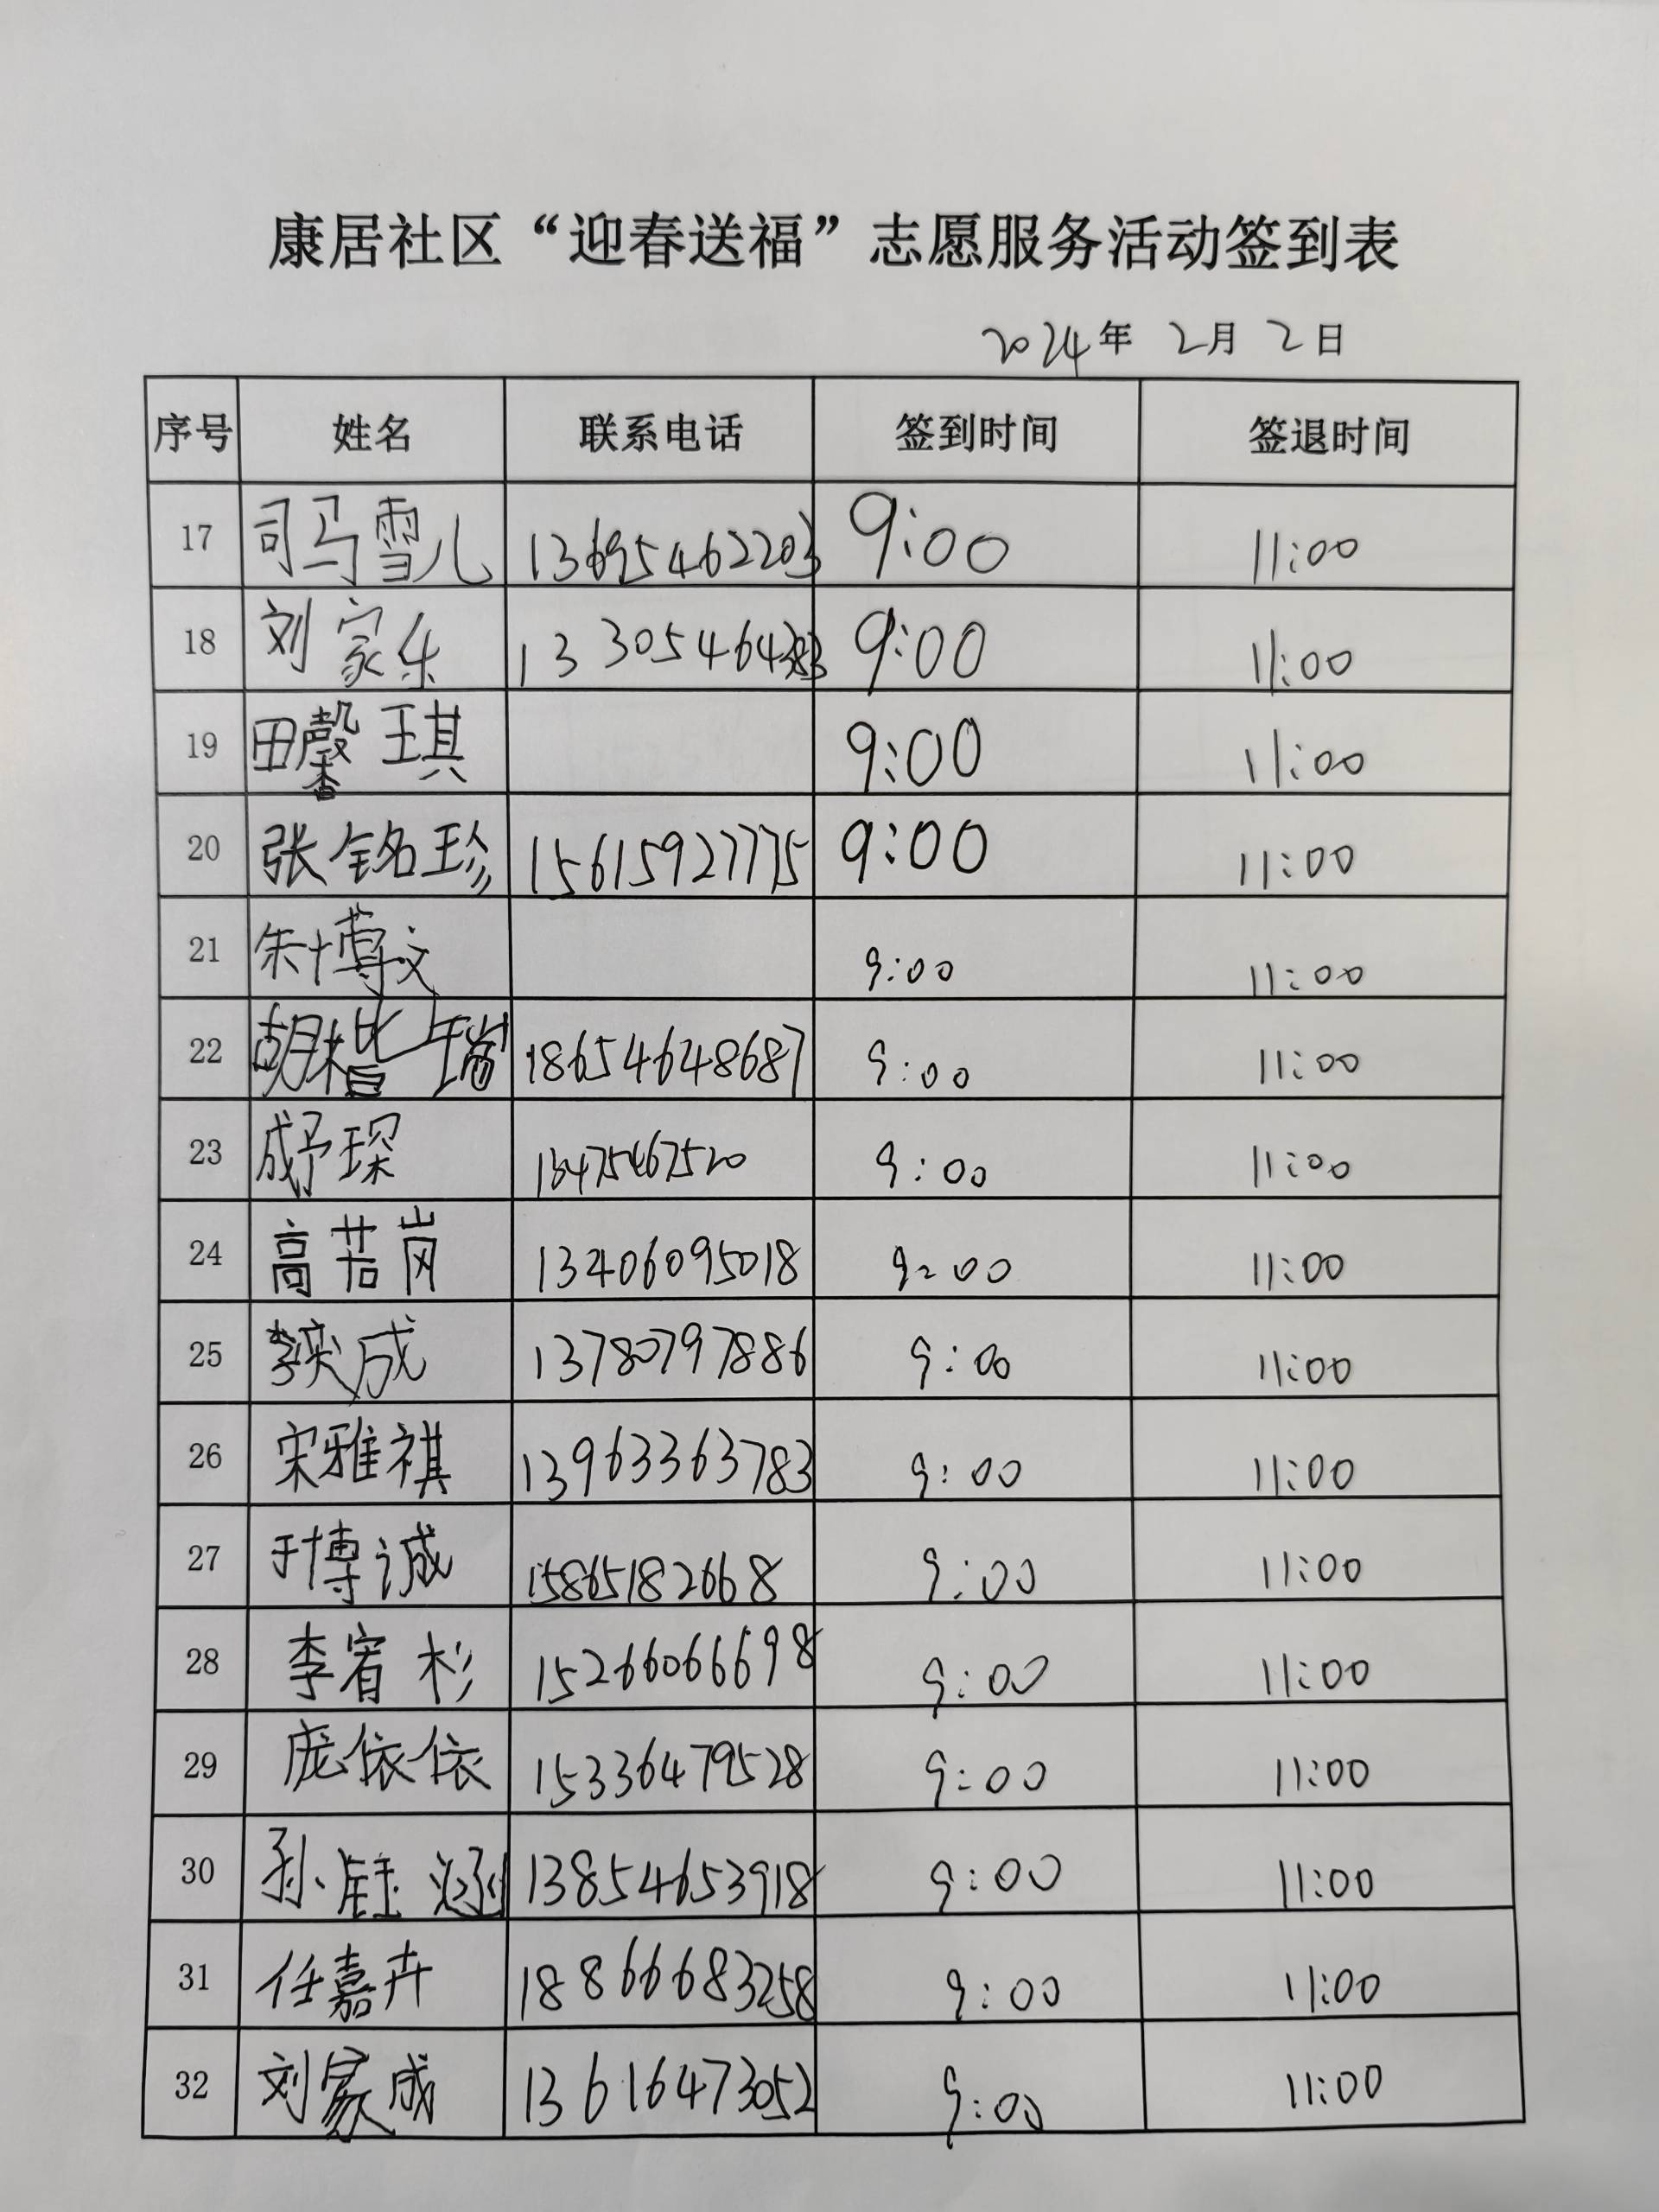 康居社区“迎春送福”志愿服务活动签到表
2024年 2月 2日
序号 姓名 联系电话 签到时间 签退时间
17 司马雪儿 13695462203 9:00 11:00
18 刘家乐 13305464383 9:00 11:00
19 田馨琪 9:00 11:00
20 张铭珍 15615927775 9:00 11:00
21 朱博文 9:00 11:00
22 胡楷瑞 18654648687 9:00 11:00
23 成予琛 13475467520 9:00 11:00
24 高若岗 13406095018 9:00 11:00
25 李奕成 13780797886 9:00 11:00
26 宋雅祺 13963363783 9:00 11:00
27 于博诚 15865182668 9:00 11:00
28 李宥杉 15266066698 9:00 11:00
29 庞依依 15336479528 9:00 11:00
30 孙钰涵 13854653918 9:00 11:00
31 任嘉卉 18866683258 9:00 11:00
32 刘家成 13616473052 9:00 11:00